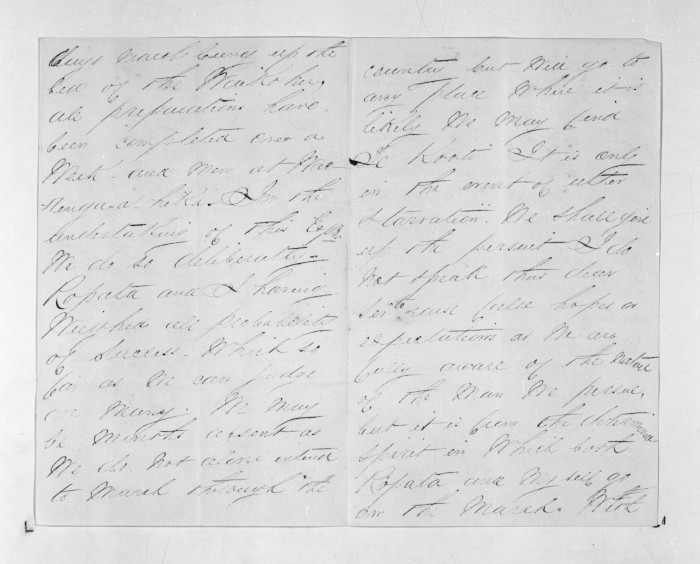 days march brings up the
bed of the Waikohu,
all preparations have
been completed over a
Week and men at
hiki. In the
undertaking of this Expn
We do so deliberately.
Ropata and I having
Weighed all probabilities
of Success. Which so
far as We can judge
are Many. We May
be Months absent as
We do not alone intend
to March through the
country but Will go to
any place Where it is
likely We May find
Te Kooti. It is only
in the event of utter
Starvation. We shall give
up the pursuit I do
Not speak thus
to raise false hopes or
expectations as We are
fully aware of the Nature
of the Man We pursue,
but it is from the determined
spirit in Which both
Ropata and Myself go
on the March. With